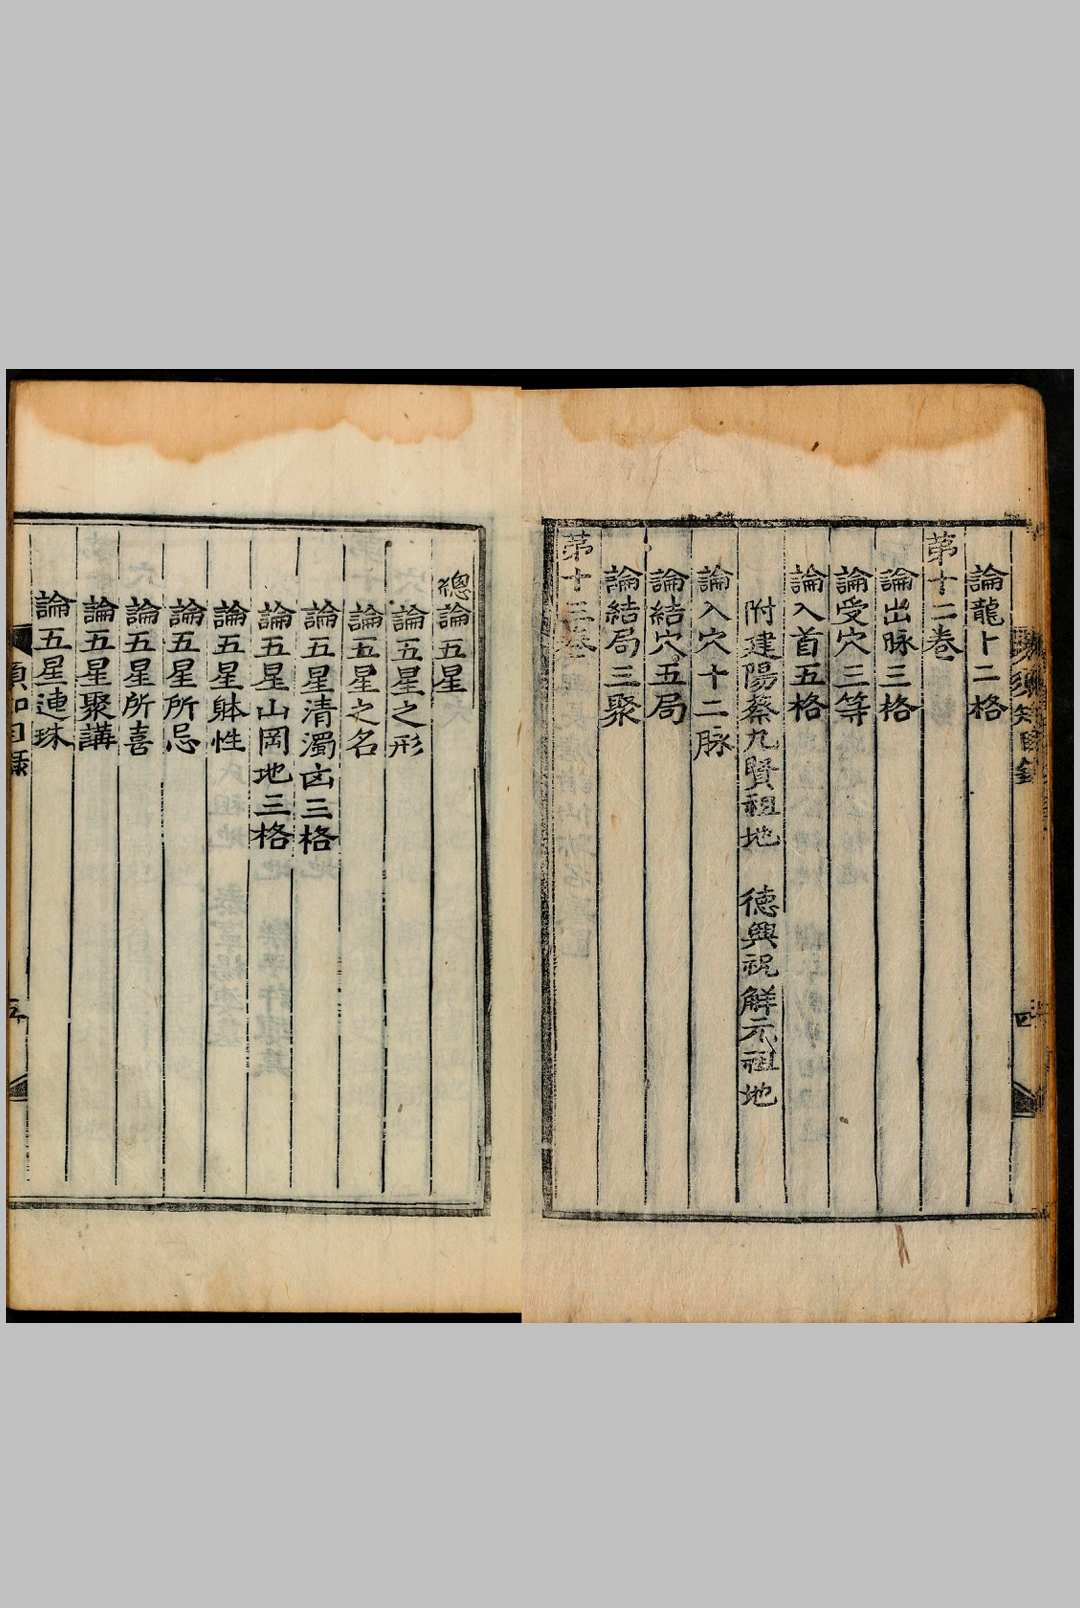 論龍十二格
第十二卷
論出脉三格
論受穴三等
論入首五格
附建陽蔡九賢祖地　德興祝解示祖地
論入穴十二脉
論結穴五局
論結局三聚
第十三卷
總論五星
論五星之形
論五星之名
論五星清濁凶三格
論五星山岡地三格
論五星躰性
論五星所忌
論五星所喜
論五星聚講
論五星連珠
須知目録
五